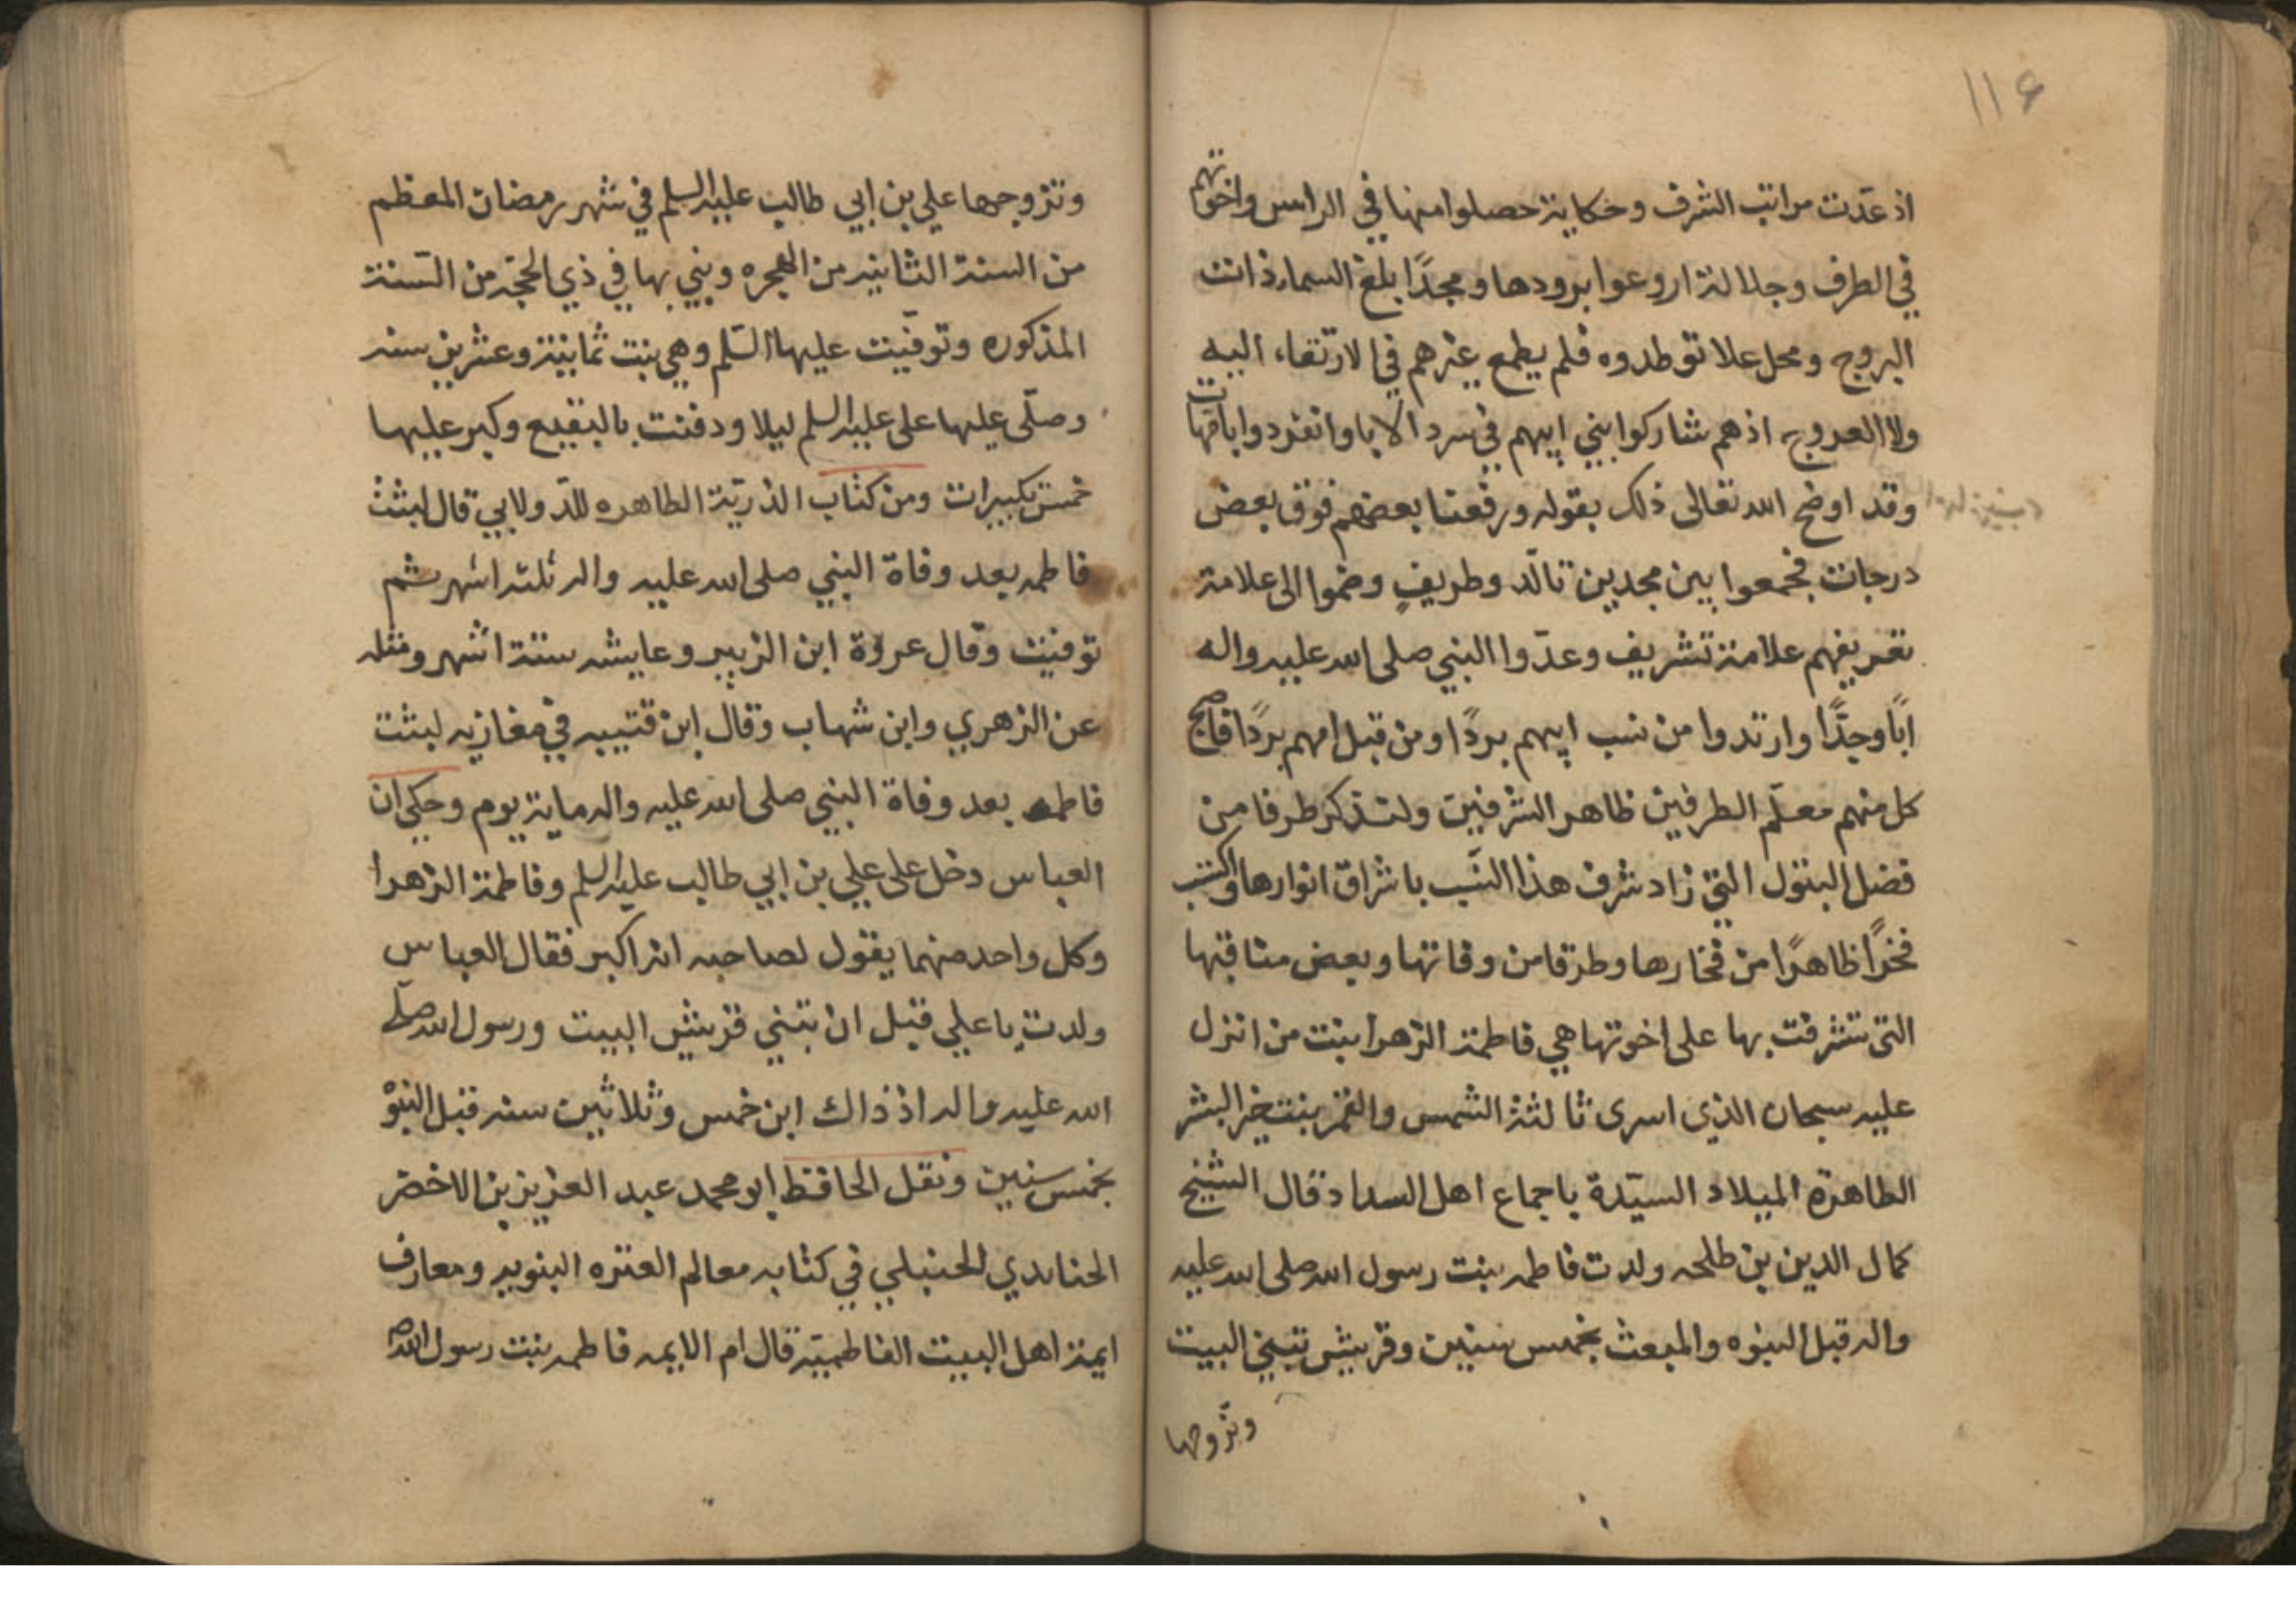 ١١٤
اذ عدّت مراتب الشرف وحكاية حصلوا منها في الراس واخوتهم
في الطرف وجلالة ادرعوا برودها ومجدًا بلغ السما ذات
البروج ومحل علا توطدوه فلم يطمع غيرهم في الارتقاء اليه
ولا العروج اذ هم شاركوا بني ابيهم في سرد الابا وانفردوا بامهات
وقد اوضح الله تعالى ذلك بقوله ورفعنا بعضهم فوق بعض
درجات فجمعوا بين مجدين تالد وطريفٍ وضموا الى علامة
تعريفهم علامة تشريف وعدّوا النبي صلى الله عليه واله
ابًا وجدًّا وارتدوا من نسب ابيهم بردًا ومن قبل امهم بردًا فاصبح
كل منهم معلّم الطرفين ظاهر الشرفين ولنذكر طرفا من
فضل البتول التي زاد شرف هذا النسب باشراق انوارها واكتسب
فخرًا ظاهرًا من فخارها وطرفا من وفاتها وبعض مناقبها
التى تشرفت بها على اخوتها هي فاطمة الزهرا بنت من انزل
عليه سبحان الذي اسرى ثالثة الشمس والقمر بنت خير البشر
الطاهرة الميلاد السيّدة باجماع اهل السداد قال الشيخ
كمال الدين بن طلحه ولدت فاطمه بنت رسول الله صلى الله عليه
واله قبل النبوه والمبعث بخمس سنين وقريش تبني البيت
وتزوجها
وتزوجها علي بن ابي طالب عليه السلم في شهر رمضان المعظم
من السنة الثانيه من الهجره وبني بها في ذي الحجة من السّنة
المذكوره وتوفّيت عليها السّلم وهي بنت ثمانية وعشرين سنه
وصلّى عليها على عليه السلم ليلا ودفنت بالبقيع وكبر عليها
خمس تكبيرات ومن كتاب الذريّة الطاهره للدّولابي قال لبثت
فاطمه بعد وفاة النبي صلى الله عليه واله ثلثة اشهر ثم
توفيت وقال عروة ابن الزبير وعايشه ستة اشهر ومثله
عن الزهري وابن شهاب وقال ابن قتيبه في مغازيه لبثت
فاطمه بعد وفاة النبي صلى الله عليه واله ماية يوم وحكى ان
العباس دخل على علي بن ابي طالب عليه السلم وفاطمة الزهرا
وكل واحد منهما يقول لصاحبه انه اكبر فقال العباس
ولدت يا علي قبل ان تبني قريش البيت ورسول الله صلّى
الله عليه واله اذ ذاك ابن خمس وثلاثين سنه قبل النبوة
بخمس سنين ونقل الحافظ ابو محمد عبد العزيز بن الاخضر
الحنابدي الحنبلي في كتابه معالم العتره النبويه ومعارف
ايمة اهل البيت الفاطميّة قال ام الايمه فاطمه بنت رسول الله ص